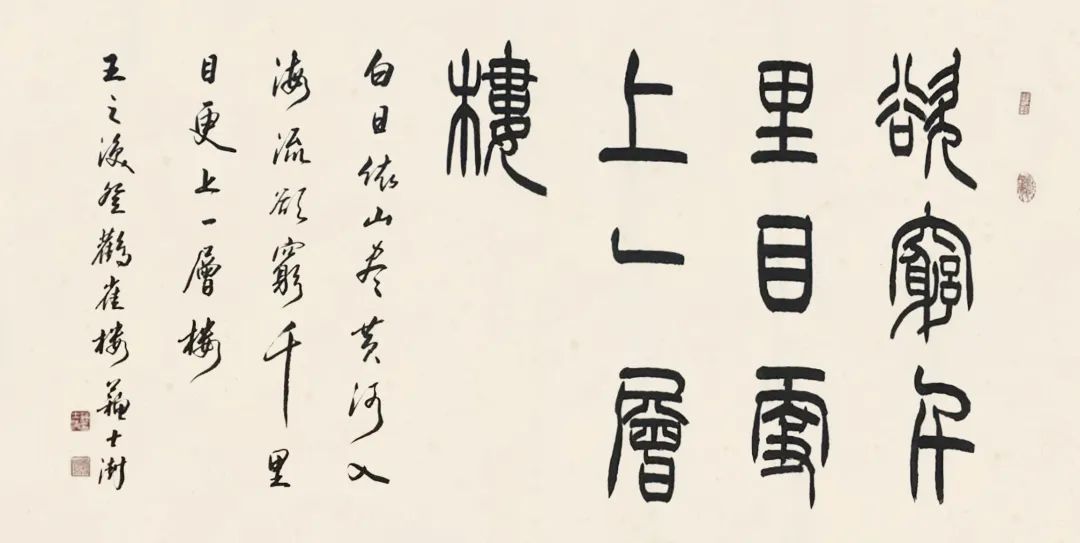 欲窮千
里目更
上一層
樓
白日依山盡黃河入
海流欲窮千里
目更上一層樓
王之渙登鸛雀樓蘇士澍